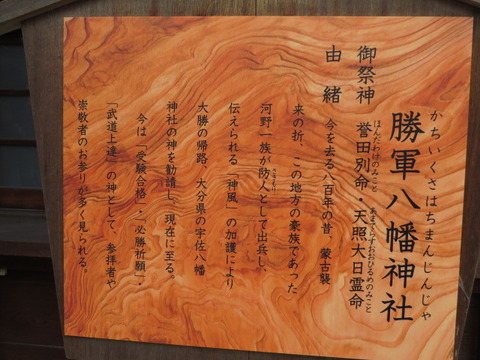 かちいくさはちまんじんじゃ
勝軍八幡神社
ほんだわけのみこと あまてらすおおひるめのみこと
御祭神 誉田別命・天照大日霊命
由緒 今を去る八百年の昔 蒙古襲
来の折、この地方の豪族であった
さきもり
河野一族が防人として出兵し、
伝えられる「神風」の加護により
大勝の帰路、大分県の宇佐八幡
神社の神を勧請し、現在に至る。
今は「受験合格」・「必勝祈願」・
「武道上達」の神として、参拝者や
崇敬者のお参りが多く見られる。